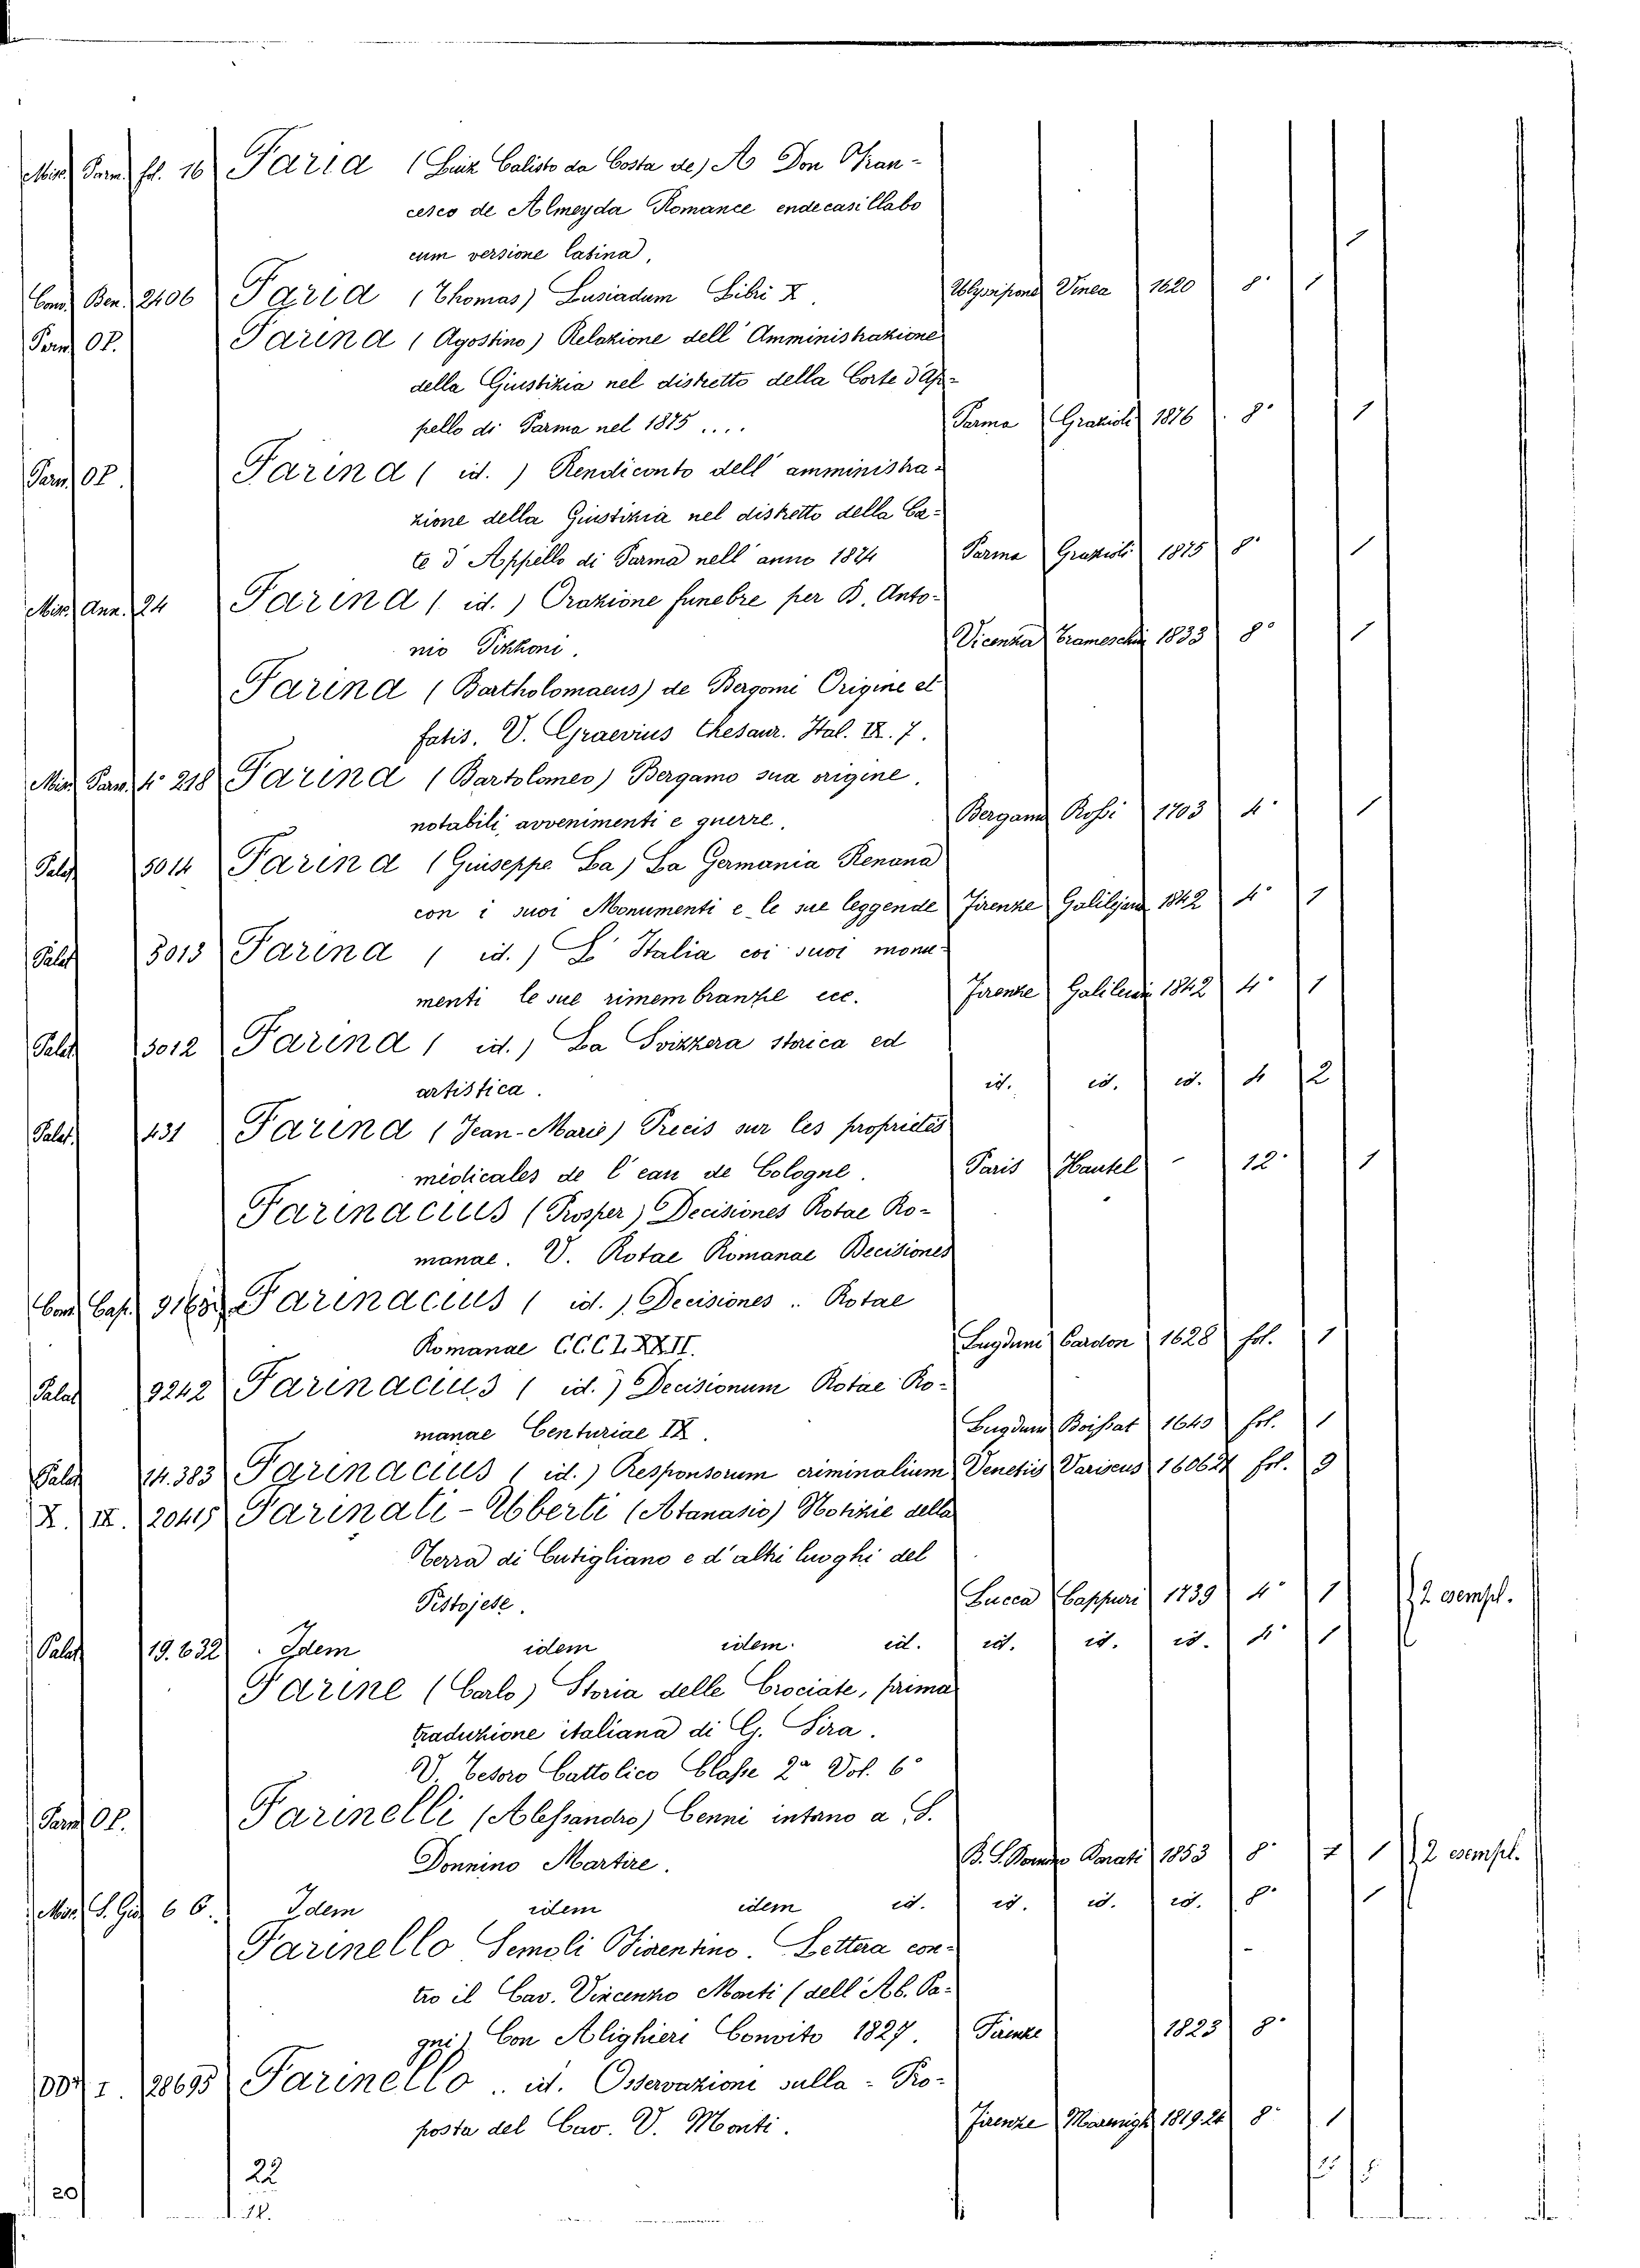 Misc. Parm. fol. 16 Faria (Luiz Calisto da Costa de) A Don Fran-
cesco de Almeyda Romance endecasillabo
cum versione latina. 1
Conv. Ben. 2406 Faria (Thomas) Lusiadum Libri X. Ulyssipone Vinea 1620 8° 1
Parm. OP. Farina (Agostino) Relazione dell' Amministrazione
della Giustizia nel distretto della Corte d'Ap-
pello di Parma nel 1875.... Parma Grazioli 1876 8° 1
Parm. OP. Farina (id.) Rendiconto dell' amministra-
zione della Giustizia nel distretto della Co-
te d'Appello di Parma nell' anno 1874 Parma Grazioli 1875 8° 1
Misc. Ann. 24 Farina (id.) Orazione funebre per B. Anto-
nio Pizzoni. Vicenza Trameschin 1833 8° 1
Farina (Bartholomaeus) de Bergomi Origine et
fatis. V. Graevius Thesaur. Ital. IX. 7.
Misc. Parm. 4° 218 Farina (Bartolomeo) Bergamo sua origine,
notabili avvenimenti e guerre. Bergamo Rossi 1703 4° 1
Palat. 5014 Farina (Giuseppe La) La Germania Renana
con i suoi Monumenti e le sue leggende Firenze Galilejana 1842 4° 1
Palat. 3013 Farina (id.) L'Italia coi suoi monu-
menti le sue rimembranze ecc. Firenze Galileiana 1842 4° 1
Palat. 3012 Farina (id.) La Svizzera storica ed
artistica. id. id. id. 4 2
Palat. 431 Farina (Jean-Marie) Precis sur les proprietés
médicales de l'eau de Cologne. Paris Hautel - 12° 1
Farinacius (Prosper) Decisiones Rotae Ro-
manae. V. Rotae Romanae Decisiones
Conv. Cap. Farinacius (id.) Decisiones .. Rotae
Romanae CCCLXXII. Lugduni Cardon 1628 fol. 1
Palat. 9242 Farinacius (id.) Decisionum Rotae Ro-
manae Centuriae IX. Lugduni Boissat 1640 fol. 1
Palat. 14.383 Farinacius (id.) Responsorum criminalium Venetiis Variscus 1606 fol. 3
X. IX. 20415 Farinati-Uberti (Atanasio) Notizie della
Terra di Cutigliano e d'altri luoghi del
Pistojese. Lucca Cappuri 1739 4° 1 2 esempl.
Palat. 19.632 Idem idem idem id. id. id. id. 4° 1
Farine (Carlo) Storia delle Crociate, prima
traduzione italiana di G. Sira.
V. Tesoro Cattolico Classe 2ª Vol. 6°
Parm. OP. Farinelli (Alessandro) Cenni intorno a S.
Donnino Martire. B. S. Donnino Donati 1853 8° 1 2 esempl.
Misc. S. Giov. 66. Idem idem idem id. id. id. id. 8° 1
Farinello Semoli Fiorentino. Lettera con-
tro il Cav. Vincenzo Monti (dell' Ab. Pa-
gni) Con Alighieri Convito 1827. Firenze 1823 8°
I. 28695 Farinello .. id. Osservazioni sulla - Pro-
posta del Cav. V. Monti. Firenze Marenigh 1819.21 8° 1
22
20